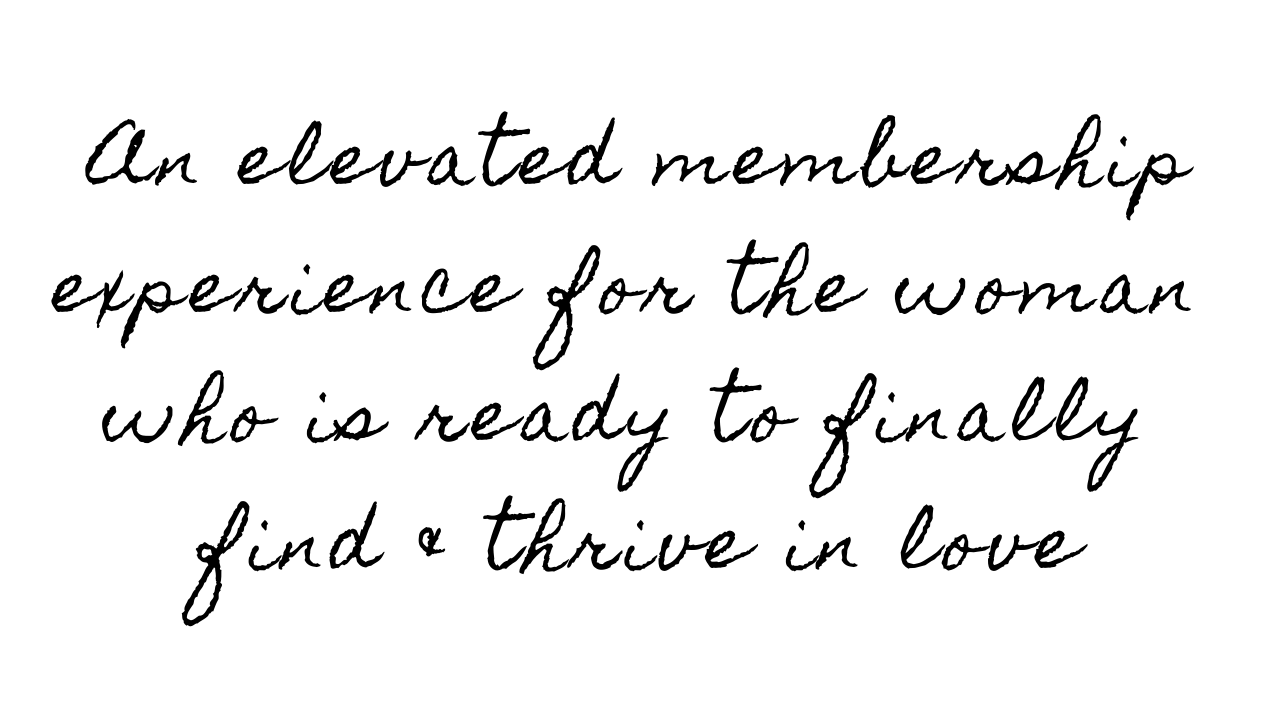 An elevated membership
experience for the woman
who is ready to finally
find & thrive in love